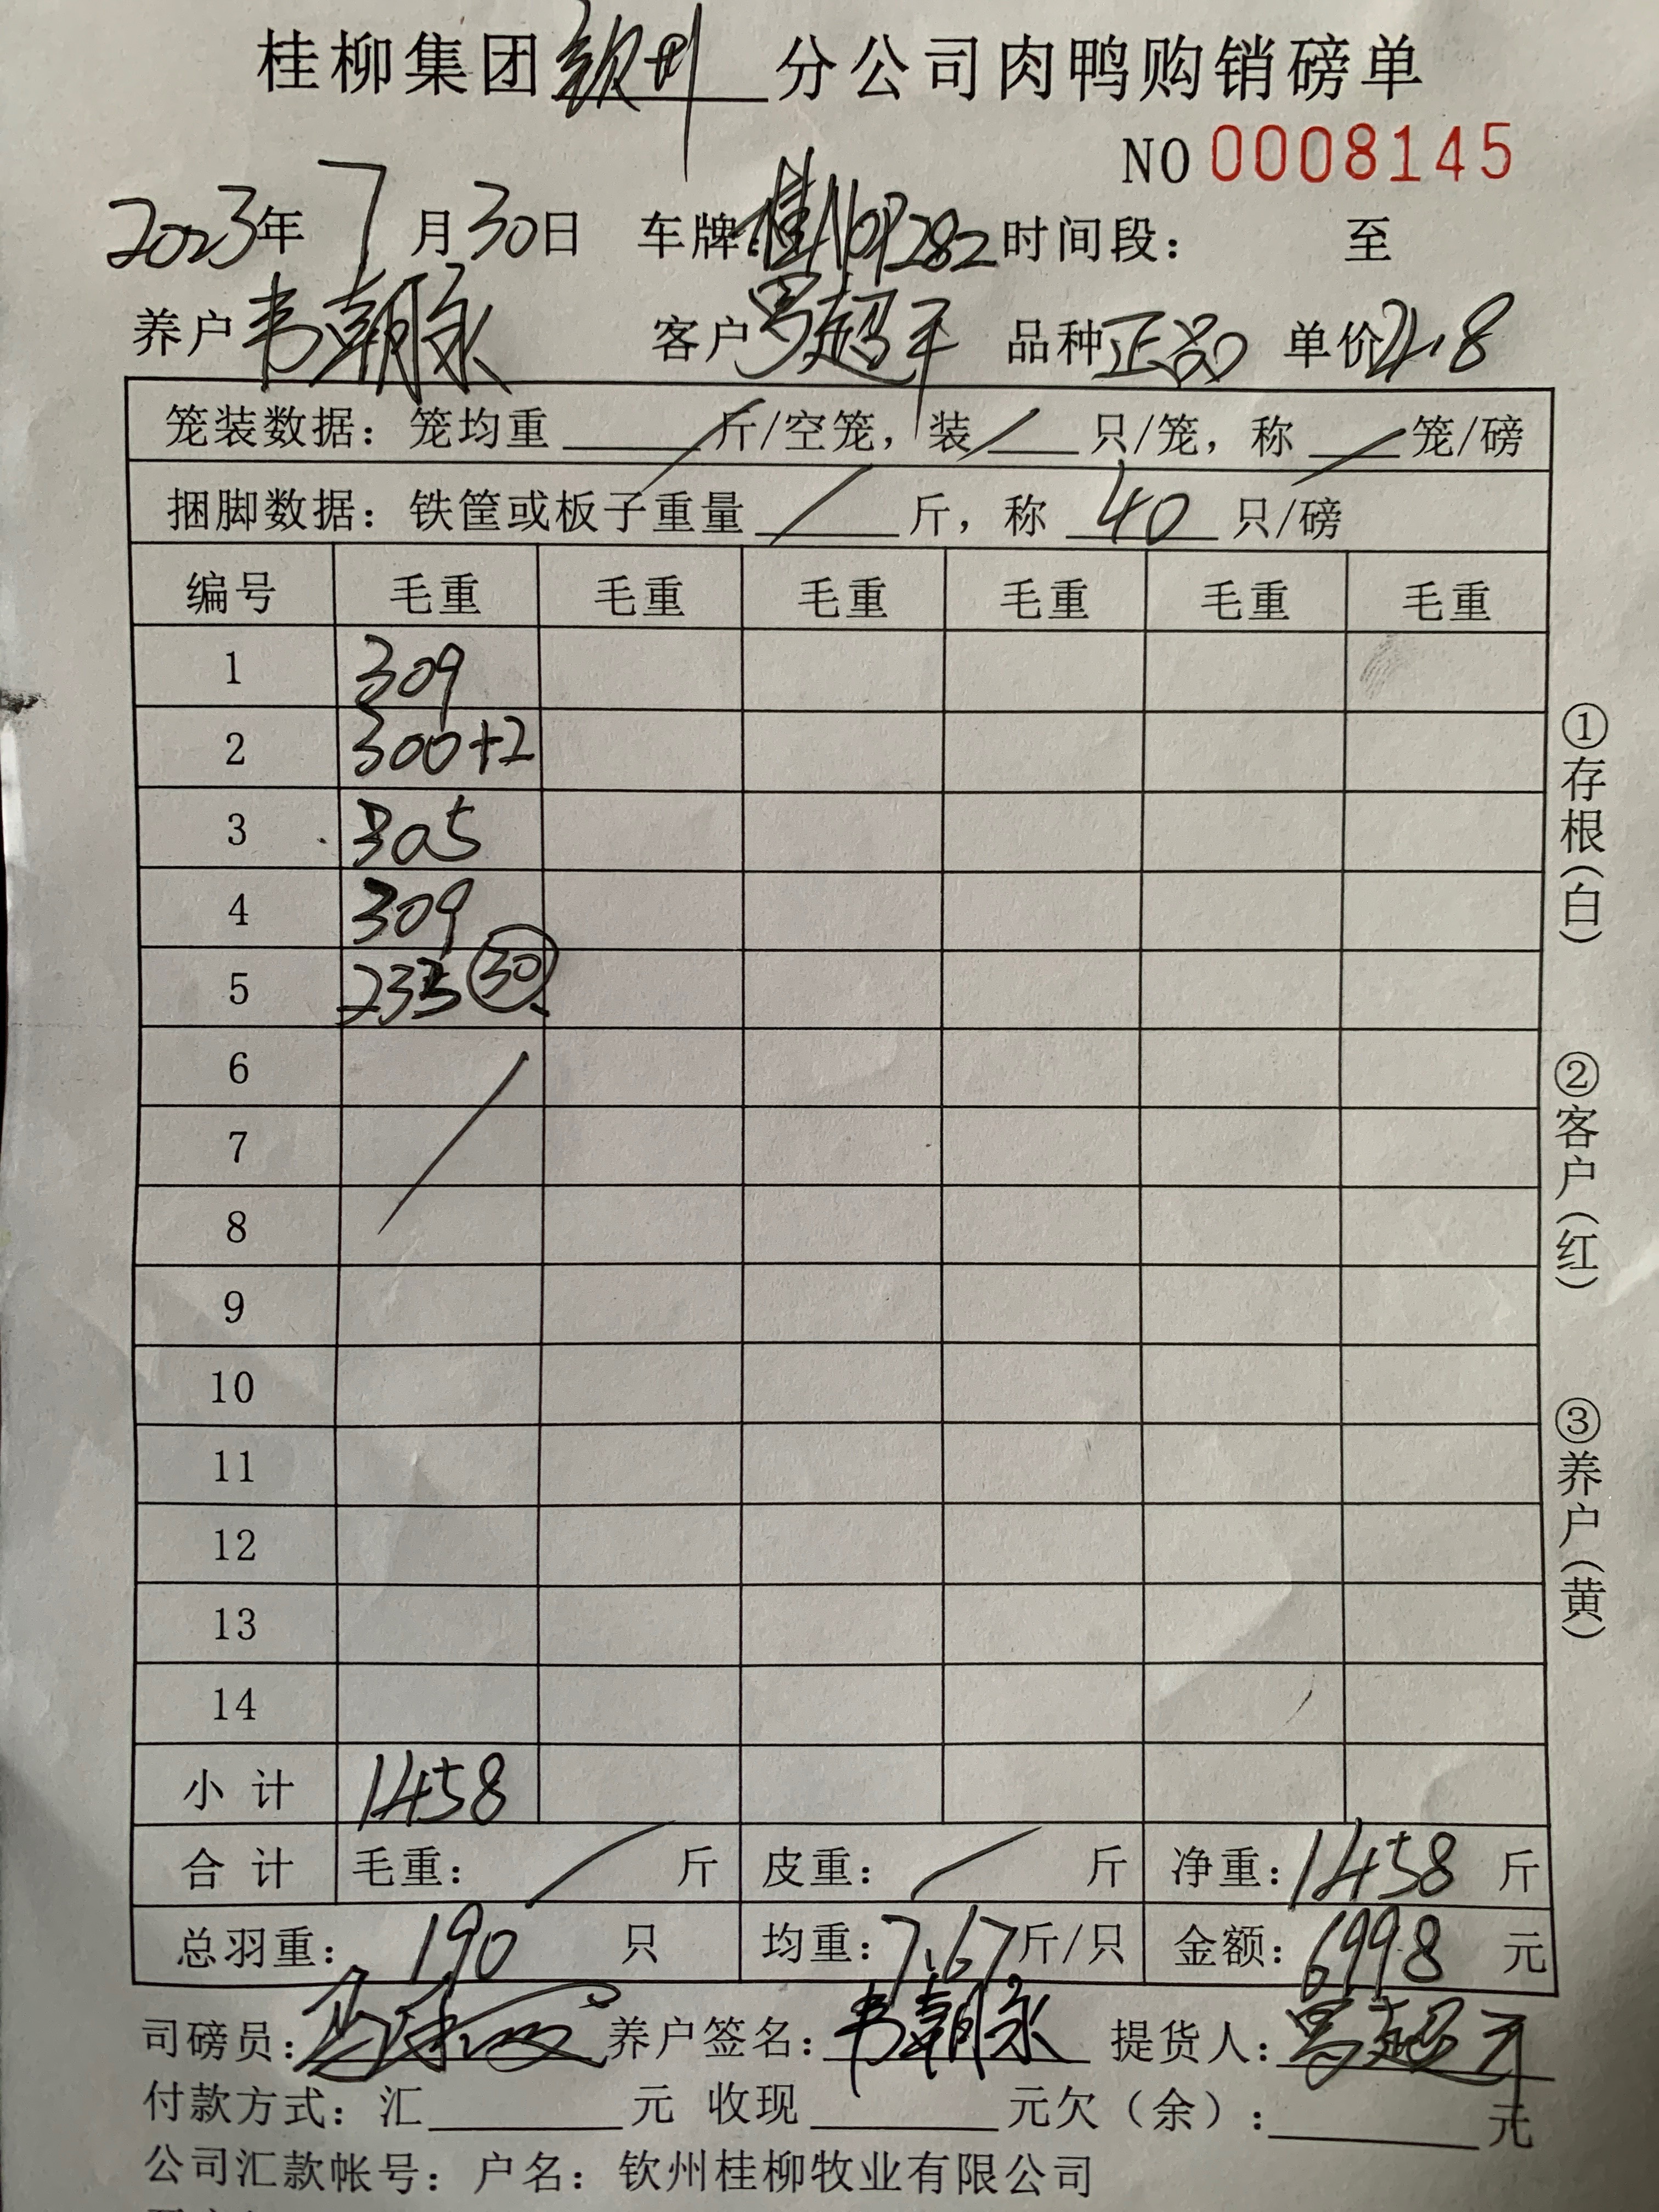 桂柳集团钦州分公司肉鸭购销磅单
NO 0008145
2023年7月30日 车牌:桂N09282时间段: 至
养户韦朝永 客户罗超平 品种正品 单价4.8
笼装数据:笼均重/斤/空笼,装/只/笼,称/笼/磅
捆脚数据:铁筐或板子重量/斤,称40只/磅
编号 毛重 毛重 毛重 毛重 毛重 毛重
1 309
2 300+2
3 305
4 309
5 233 30
6
7
8
9
10
11
12
13
14
小计 1458
合计 毛重:/斤 皮重:/斤 净重:1458斤
总羽重:190只 均重:7.67斤/只 金额:6998元
司磅员: 养户签名:韦朝永 提货人:罗超平
付款方式:汇 元 收现 元欠(余): 元
公司汇款帐号:户名:钦州桂柳牧业有限公司
①存根(白)
②客户(红)
③养户(黄)